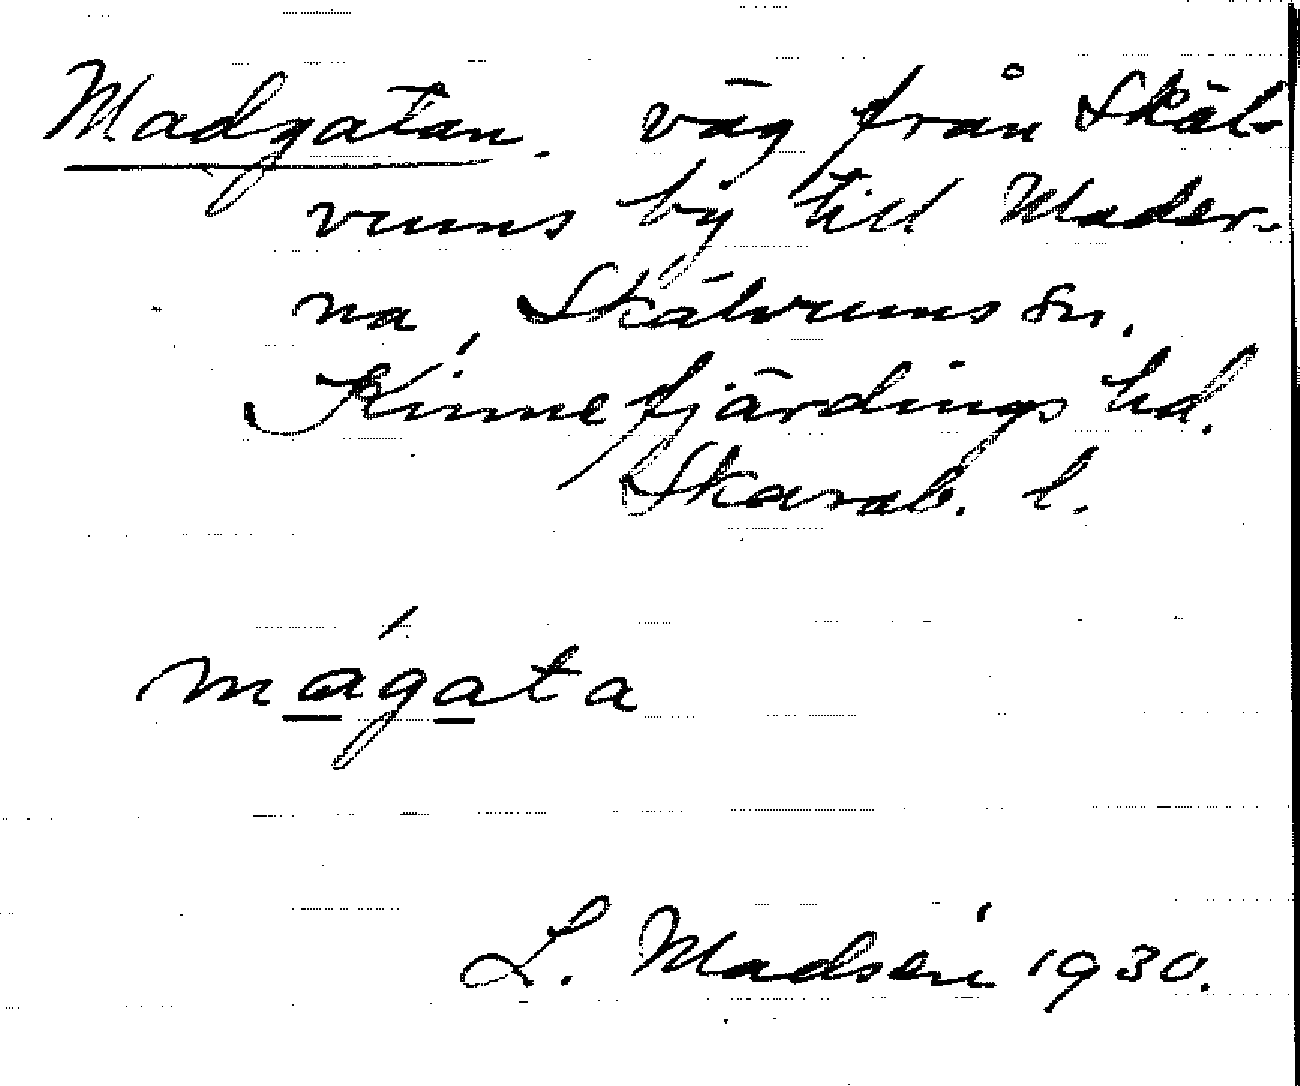 Madgatan. väg från Skäl-
vums by till Mader-
na, Skälvums sn.
Kinnefjärdings hd.
Skarab. l.
mágata
L. Madsén 1930.